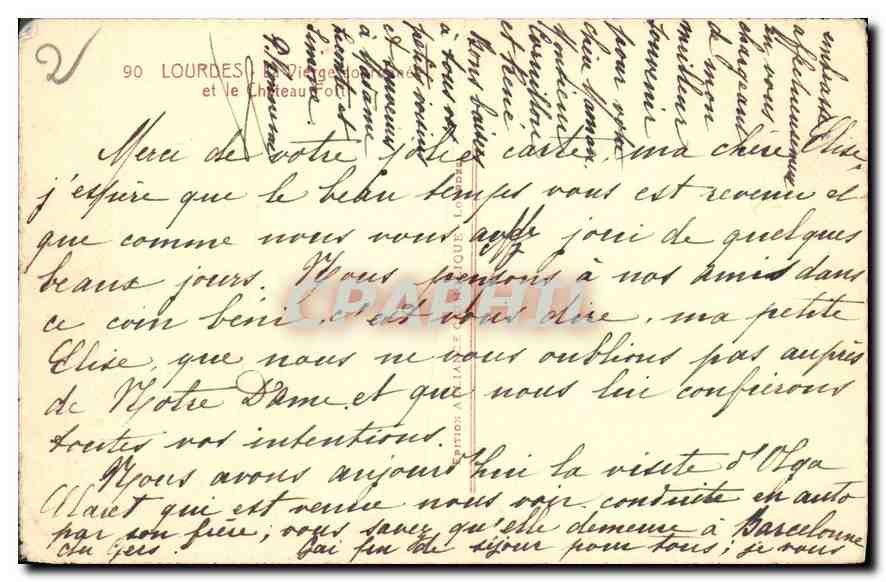 2
90 LOURDES La Vierge Couronnée
et le Château Fort
Merci de votre jolie carte, ma chère Elise,
j'espère que le beau temps vous est revenu et
que comme nous vous avez joui de quelques
beaux jours. Nous pensons à nos amis dans
ce coin béni, c'est vous dire, ma petite
Elise, que nous ne vous oublions pas auprès
de Notre Dame et que nous lui confierons
toutes vos intentions.
Nous avons aujourd'hui la visite d'Olga
Claret qui est venue nous voir conduite en auto
par son frère; vous savez qu'elle demeure à Barcelonne
du Gers. Gai fin de séjour pour tous; je vous
embrasse
affectueusement
en vous
chargeant
d mon
meilleur
souvenir
pour votre
chère maman
et Réné
Bons baisers
à tous vos
petits
et souvenirs
à Madame
et
EDITION ALLIANCE CATHOLIQUE LOURDES
CPARAMA